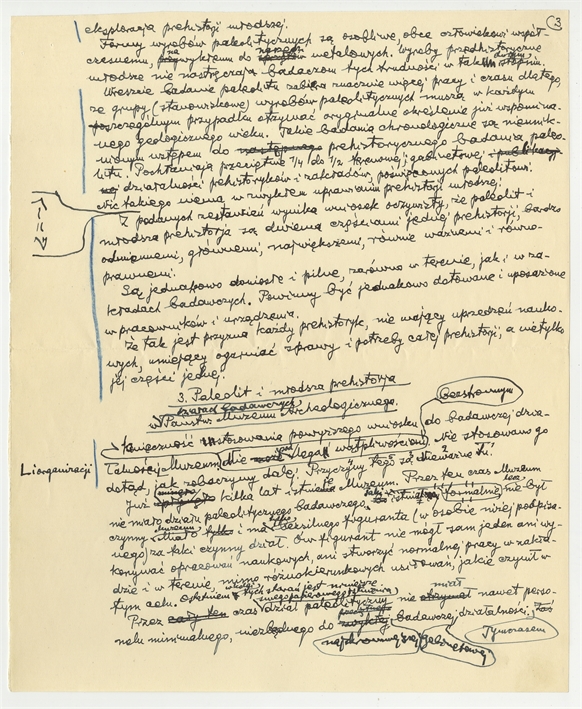 3
eksploracja prehistorji młodszej.
Formy wyrobów paleolitycznych są osobliwe, obce człowiekowi współ-
czesnemu, na narzędzi metalowych. Wyroby przedhistoryczne
młodsze nie nastręczają badaczom tych trudności w takim stopniu.
Wreszcie badanie paleolitu zabiera znacznie więcej pracy i czasu dlatego,
że grupy (stanowiskowe) wyrobów paleolitycznych muszą w każdym
poszczególnym przypadku otrzymać oryginalne określenie już wspomina-
nego geologicznego wieku. Takie badania chronologiczne są nieunik-
nionym wstępem do prehistorycznego badania paleo-
litu. Pochłaniają przeciętnie 1/4 do 1/2 terenowej, gabinetowej i
działalności prehistoryków i zakładów, poświęconych paleolitowi.
Nic takiego niema w zwykłem uprawianiu prehistorji młodszej.
Z podanych zestawień wynika wniosek oczywisty, że paleolit i
młodsza prehistorja są dwiema częściami jednej prehistorji, bardzo
odmiennemi, głównemi, największemi, równie ważnemi i równo-
prawnemi.
Są jednakowo doniosłe i pilne, zarówno w terenie, jak i w za-
kładach badawczych. Powinny być jednakowo dotowane i uposażone
w pracowników i urządzenia.
Że tak jest przyzna każdy prehistoryk, nie mający uprzedzeń nauko-
wych, umiejący ogarniać sprawy i potrzeby całej prehistorji, a nietylko
jej części jednej.
3. Paleolit i młodsza prehistorja
w badawczych
Państw. Muzeum Archeologicznego.
Konieczność stosowania powyższego wniosku do badawczej dzia-
łalności Muzeum nie ulega wątpliwości. Nie stosowano go
i organizacji
dotąd, jak zobaczymy dalej. Przyczyny tego są nieważne.
Już kilka lat istnienia Muzeum. Przez ten czas Muzeum
nie miało działu paleolitycznego badawczego. formalnie nie był
czynny i ma figuranta (w osobie niżej podpisa-
nego) za taki czynny dział. Ów figurant nie mógł sam jeden ani wy-
konywać opracowań naukowych, ani stworzyć normalnej pracy w zakła-
dzie i w terenie, mimo różnokierunkowych usiłowań, jakie czynił w
tym celu.
Przez czas dział paleolityczny nie miał nawet perso-
nelu minimalnego, niezbędnego do badawczej działalności,
Tymczasem
gabinetowej